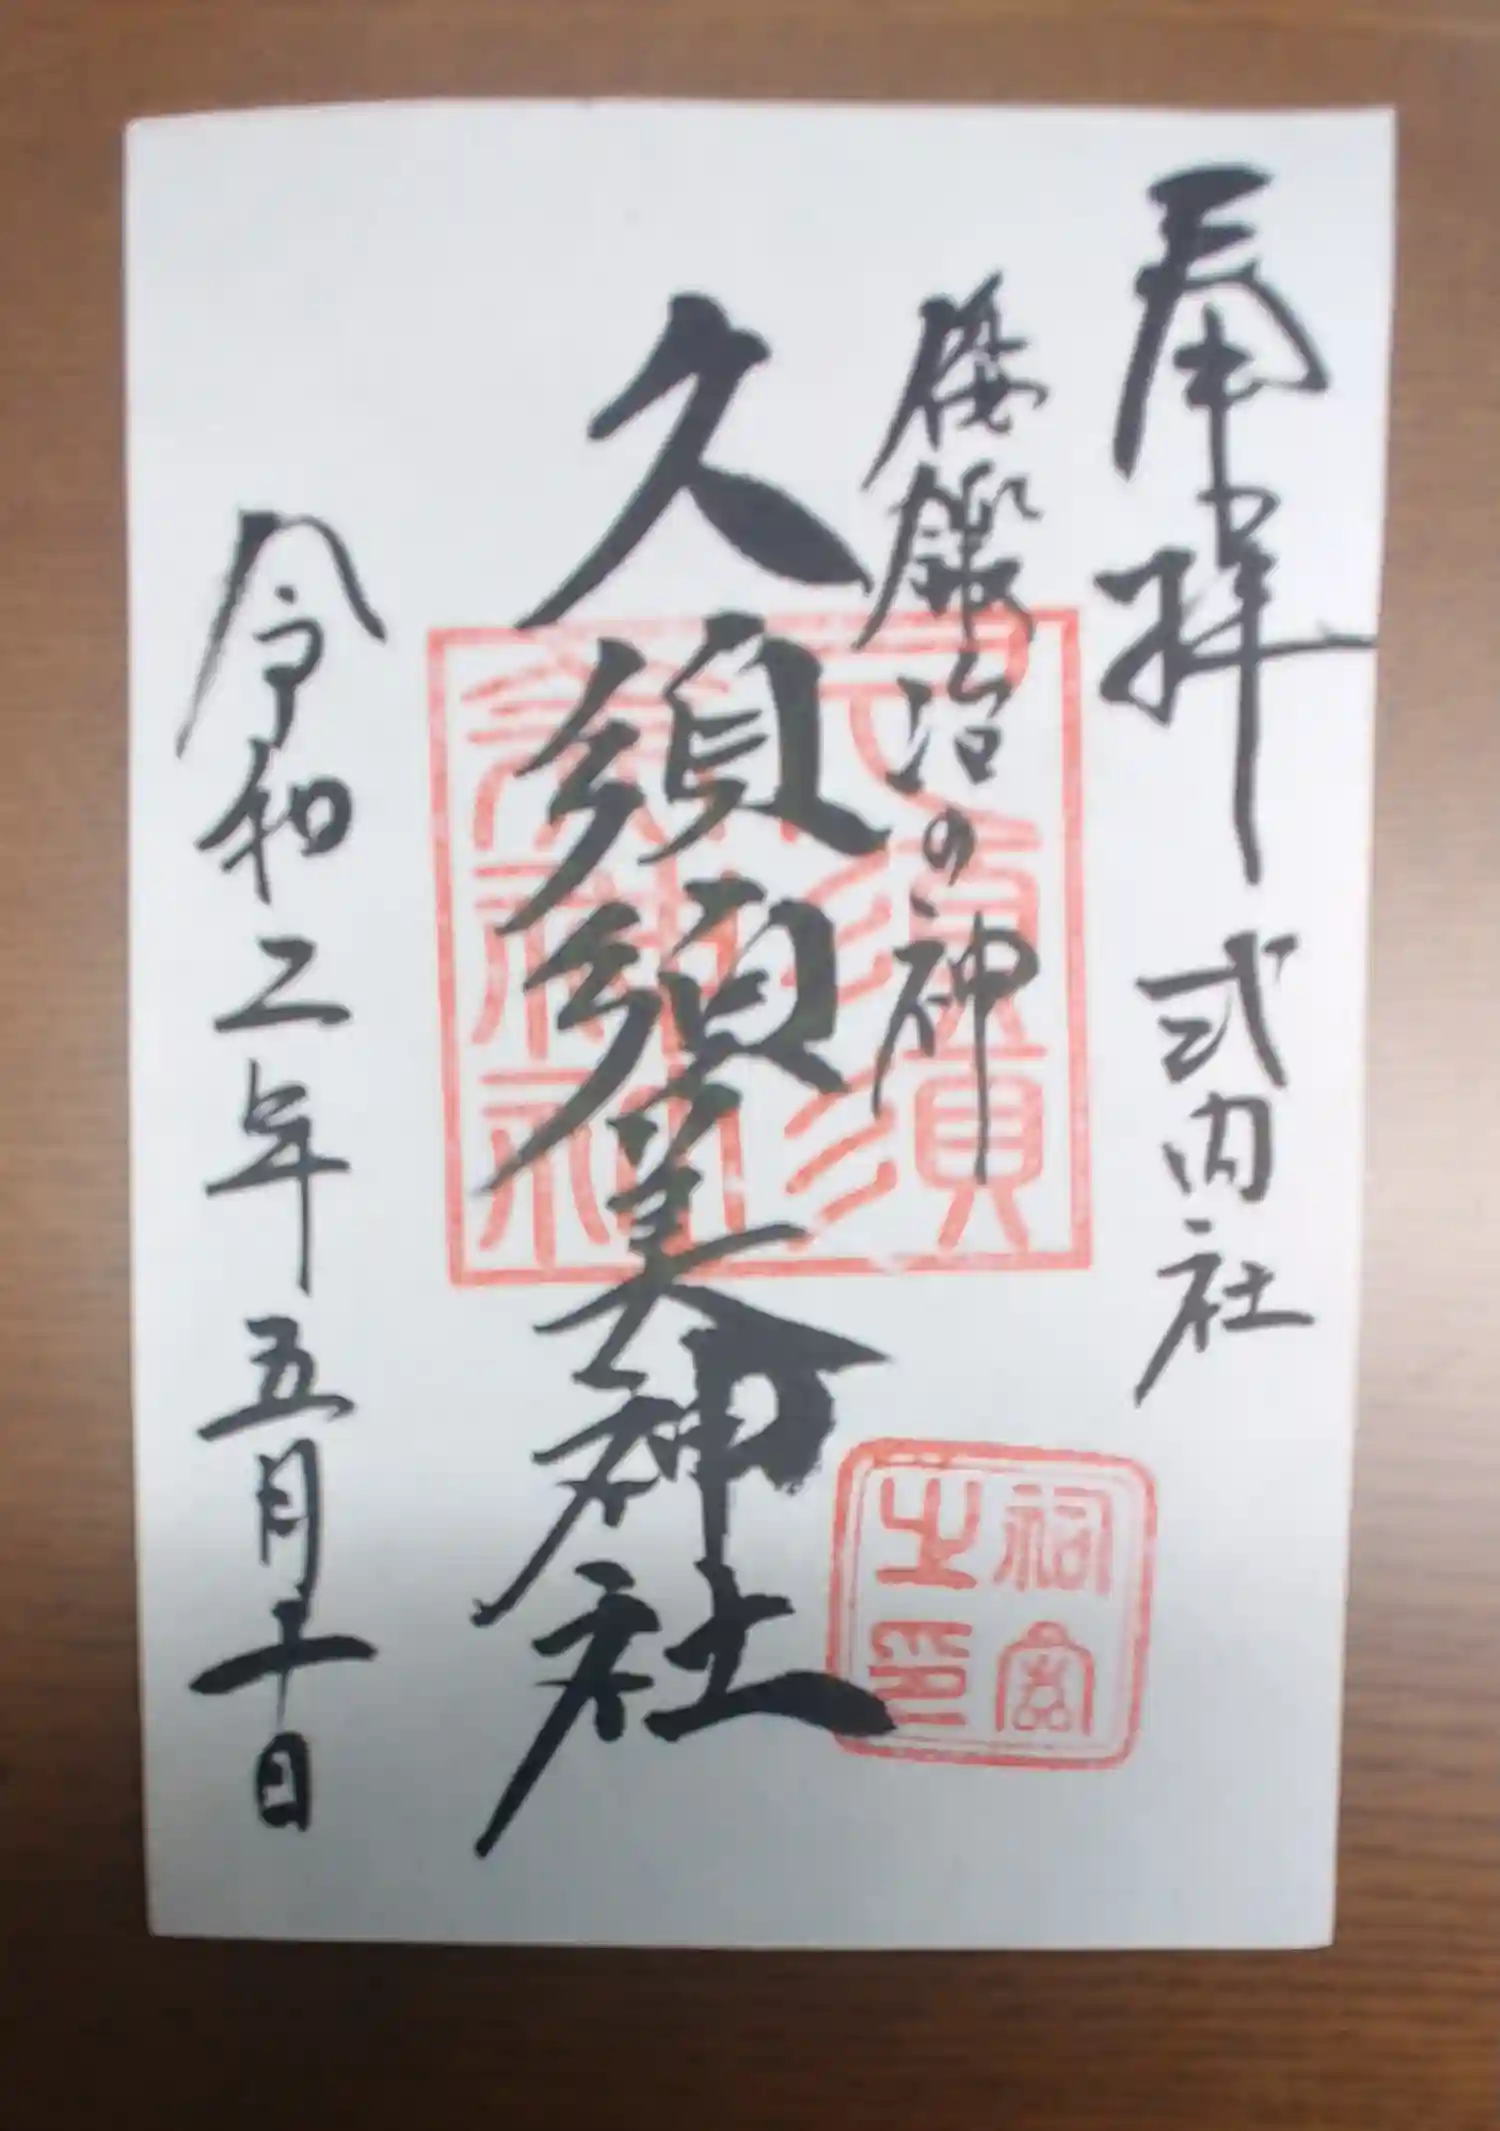 奉拝 式内社
倭鍛冶の神
久須須美神社
令和二年五月十日
久須須
美神社
祠官
之印